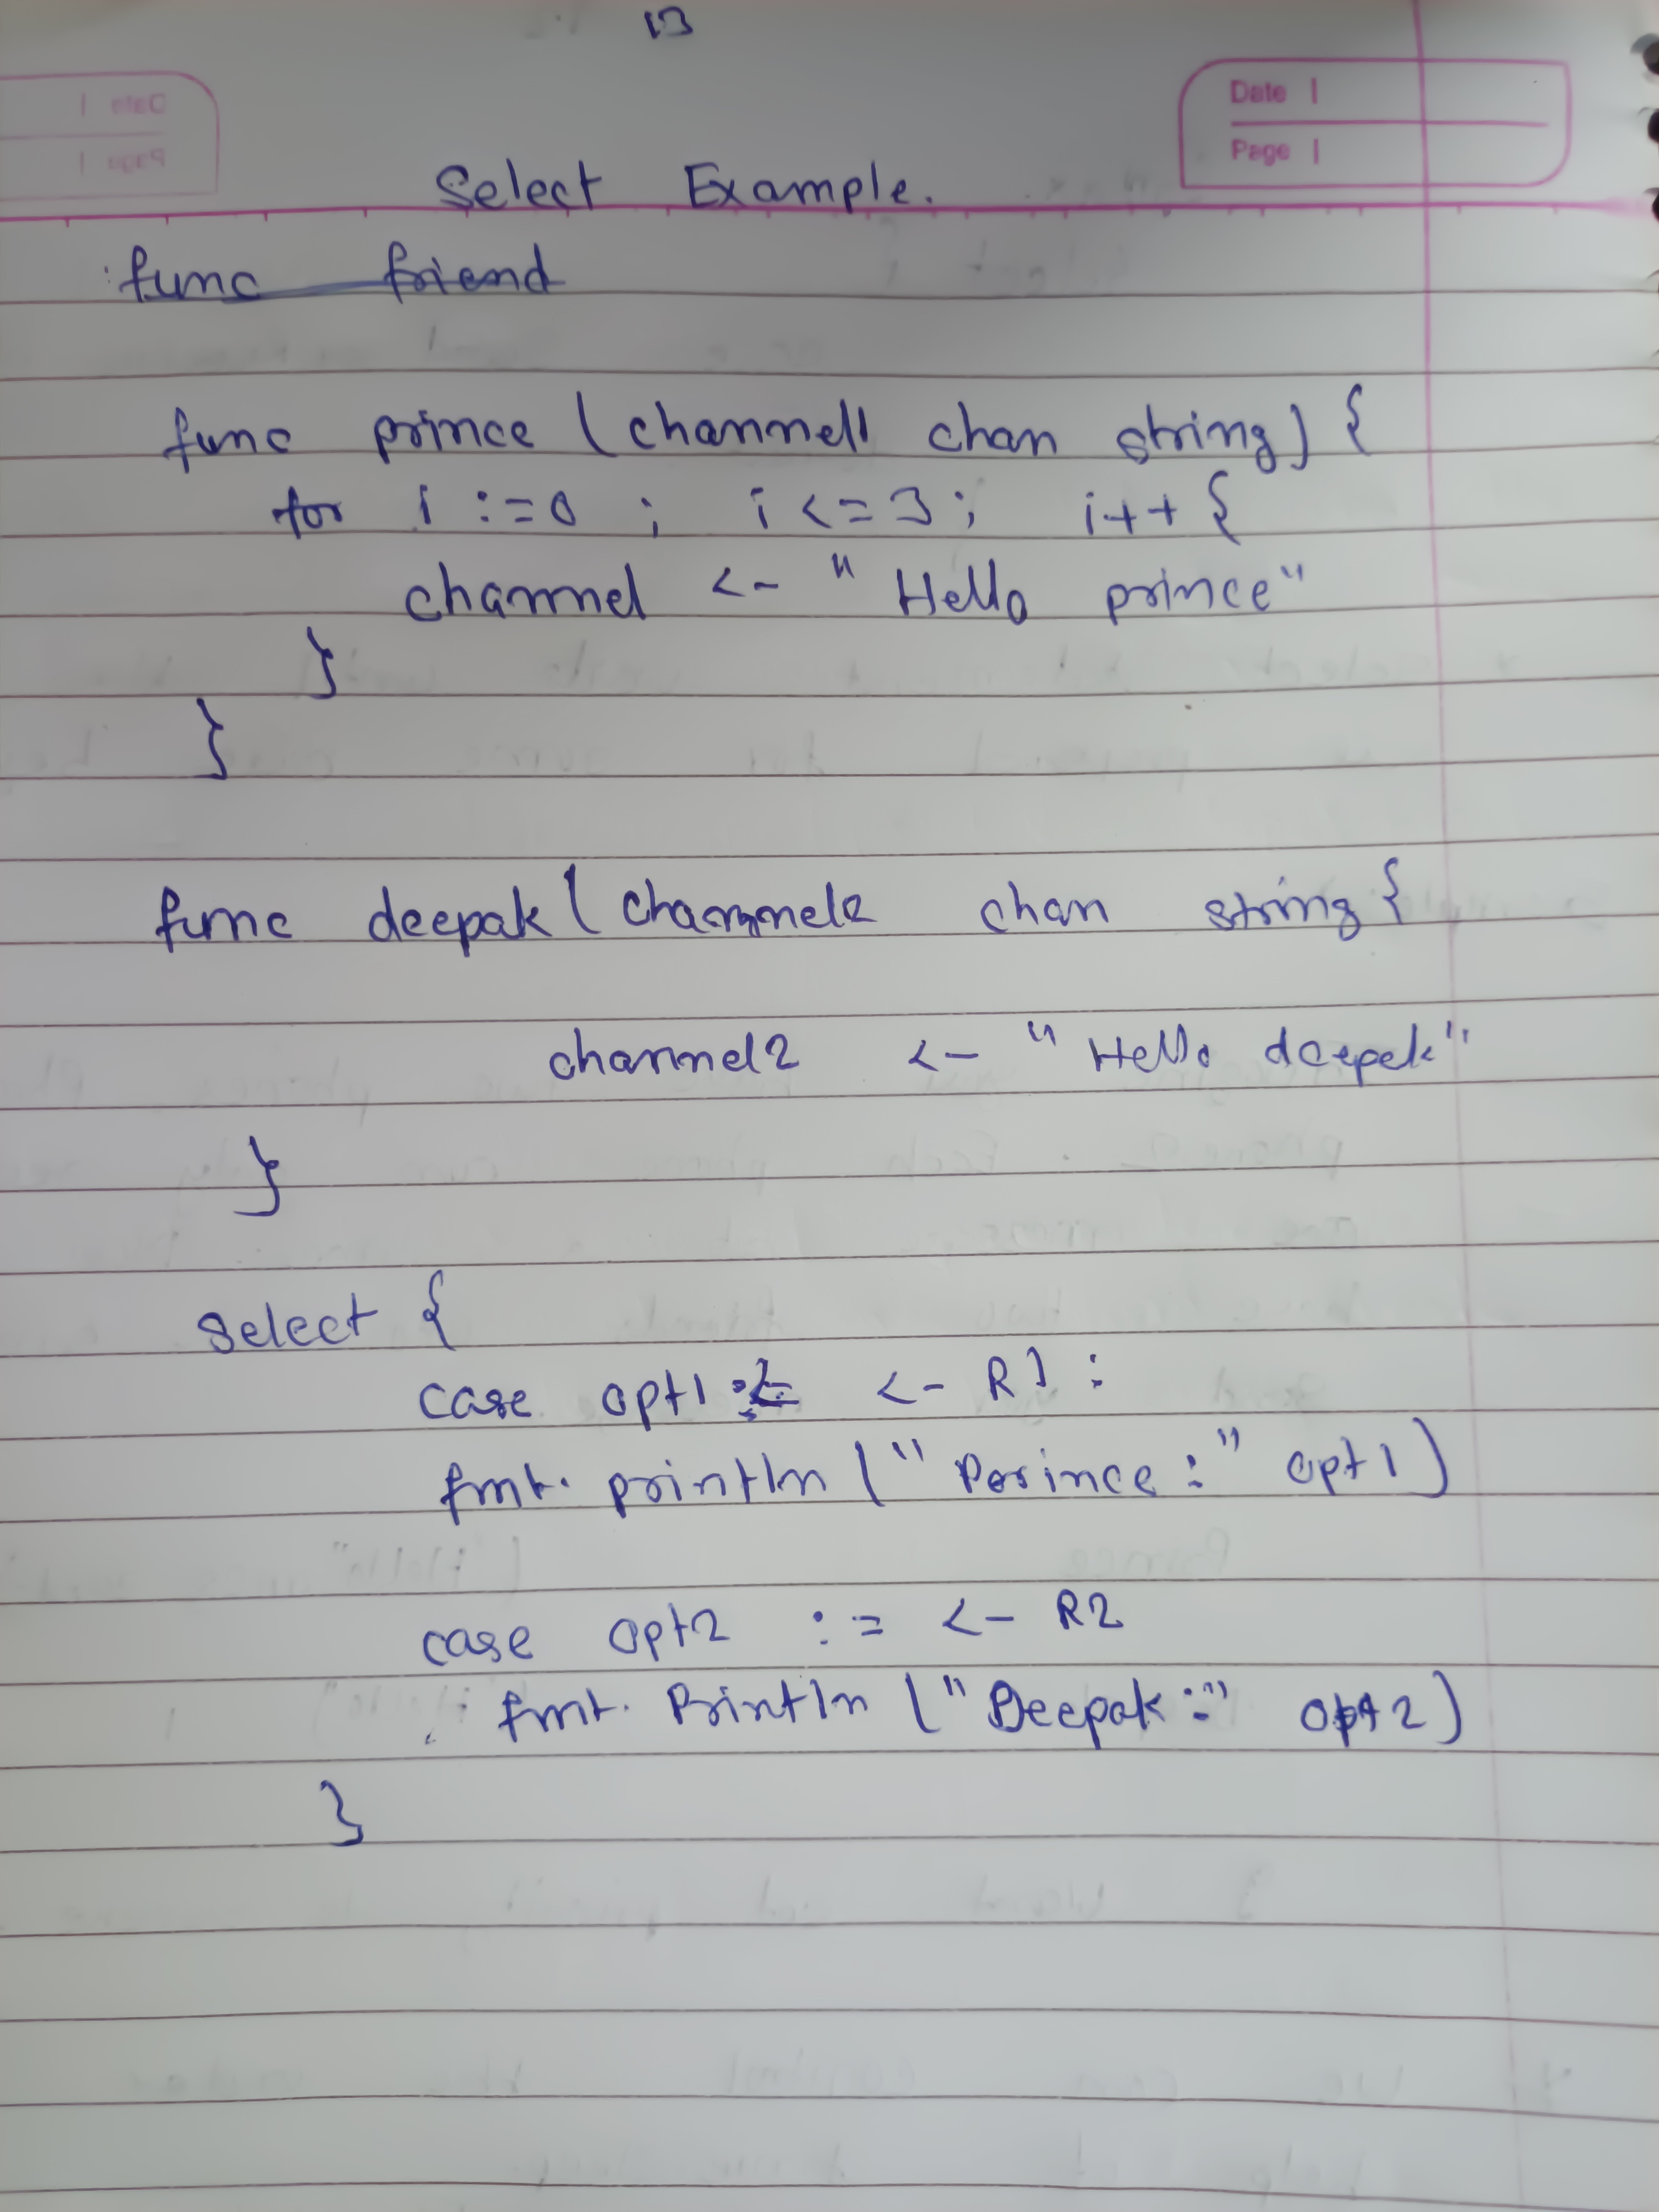 13
Date |
Page |
Select Example.
func friend
func prince (channel1 chan string) {
for i :=0 ; i <= 3 ; i++ {
channel <- "Hello prince"
}
}
func deepak ( channel2 chan string {
channel2 <- "Hello deepak"
}
select {
case opt1 := <- R1 :
fmt. println ("Porince :" opt1)
case opt2 := <- R2
fmt. Println ("Deepak :" opt2)
}